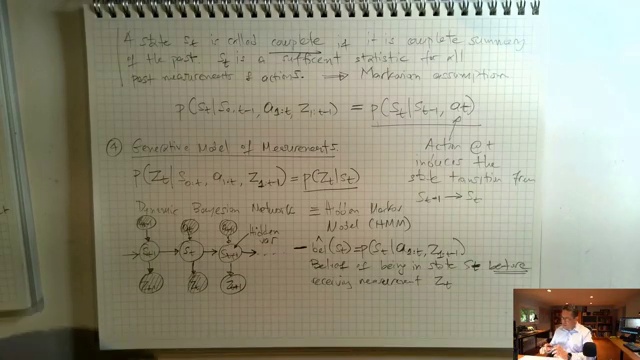 A state St is called complete if it is complete summary
of the past. St is a sufficient statistic for all
past measurements & actions. ⟹ Markovian assumption
p(St|S0:t-1, a1:t, Z1:t-1) = p(St|St-1, at)
④ Generative Model of Measurements
Action @ t
induces the
state transition from
St-1 → St
p(Zt|S0:t, a1:t, Z1:t-1) = p(Zt|St)
Dynamic Bayesian Networks ≡ Hidden Markov
Model (HMM)
at-1 at at+1
Hidden
vars
St-1 St St+1 ...
Zt-1 Zt Zt+1
- bel(St) = p(St|a1:t, Z1:t-1)
Belief of being in state St before
receiving measurement Zt